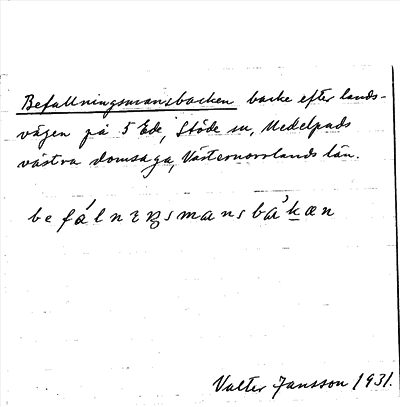 Befallningsmansbacken backe efter lands-
vägen på 5 Ede, Stöde sn, Medelpads
västra domsaga, Västernorrlands län.
befálnıŋsmansbàkæn
Valter Jansson 1931.